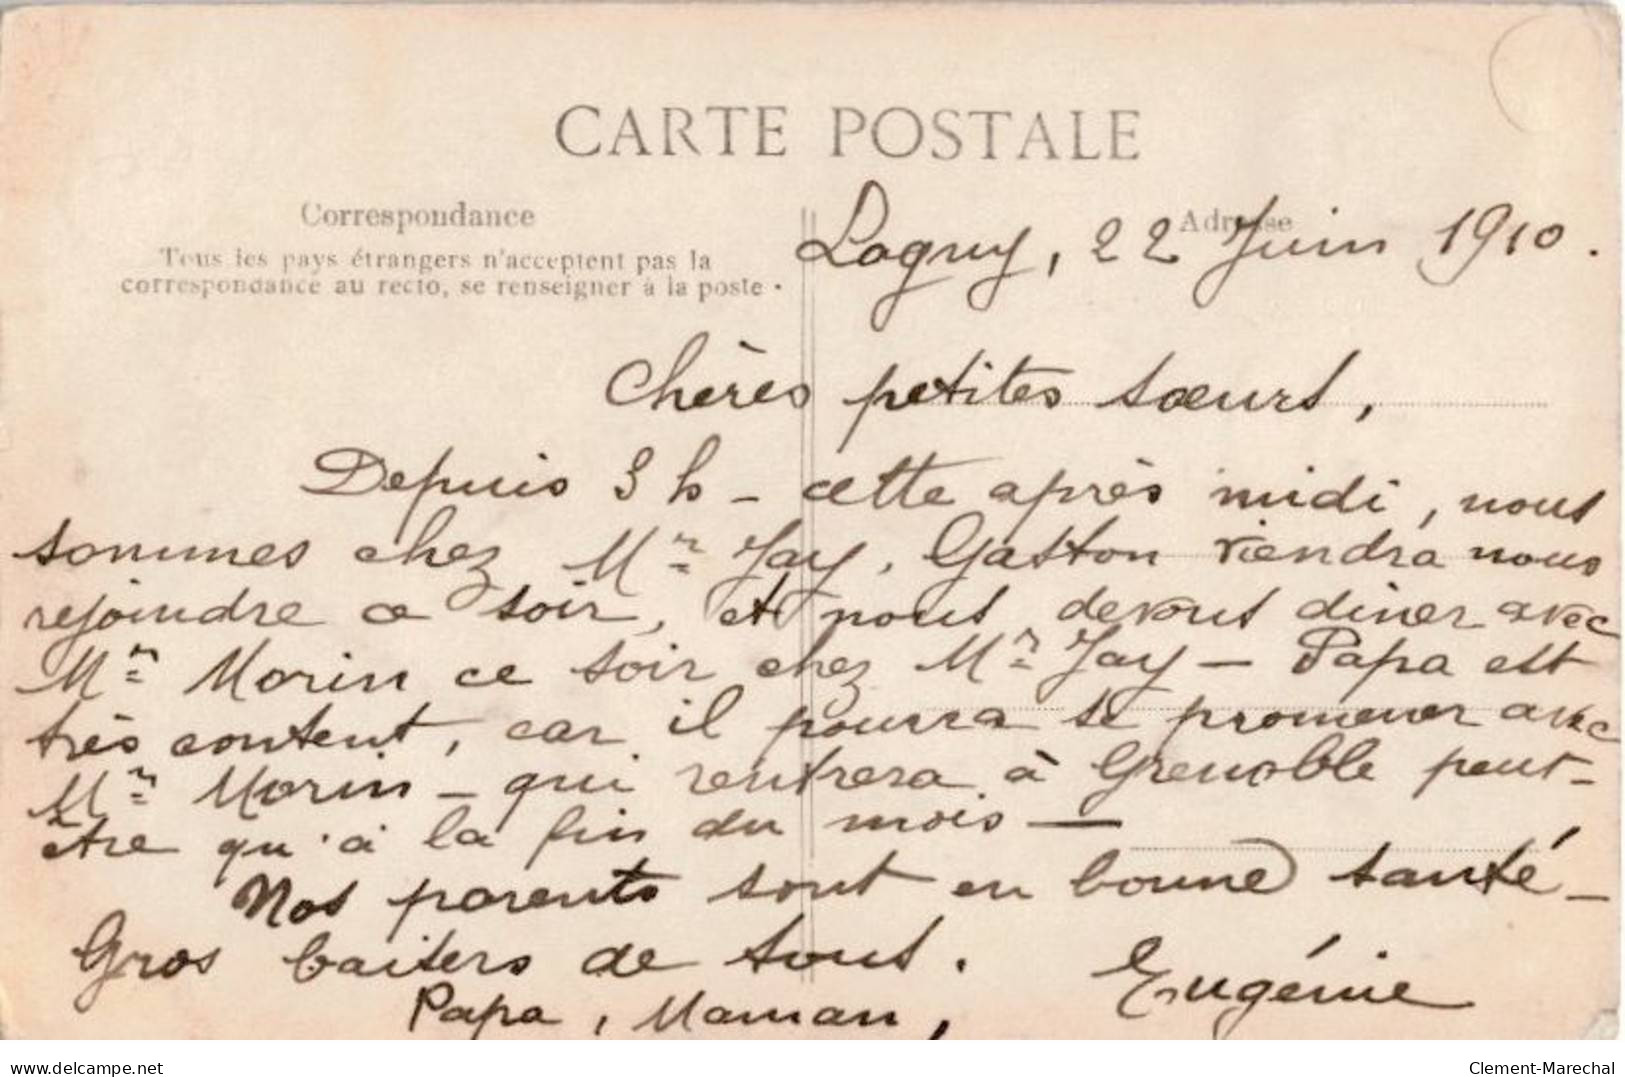 CARTE POSTALE
Correspondance
Adresse
Tous les pays étrangers n'acceptent pas la
correspondance au recto, se renseigner à la poste.
Lagny, 22 Juin 1910.
Chères petites sœurs,
Depuis 3 h - cette après midi, nous
sommes chez Mr Jay. Gaston viendra nous
rejoindre ce soir, et nous devons diner avec
Mr Morin ce soir chez Mr Jay - Papa est
très content, car il pourra se promener avec
Mr Morin - qui rentrera à Grenoble peut-
être qu'à la fin du mois -
Nos parents sont en bonne santé -
Gros baisers de tous.
Eugénie
Papa, Maman,
delcampe.net
Clement-Marechal